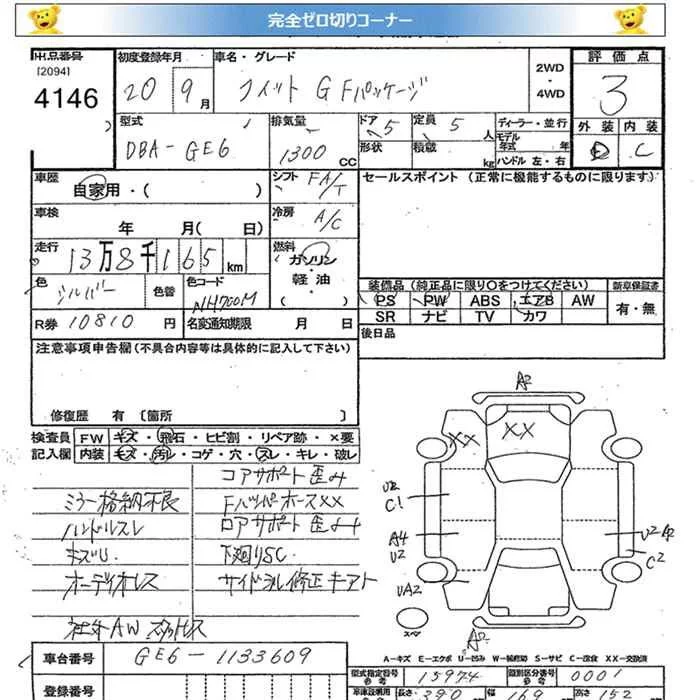 完全ゼロ切りコーナー
出品番号
[2094]
4146
初度登録年月
20年 9月
車名・グレード
フィット G Fパッケージ
2WD
・
4WD
評価点
3
外装 内装
D C
型式
DBA-GE6
排気量
1300 CC
ドア 5
形状
定員 5 人
積載 kg
ディーラー・並行
モデル年式 年
ハンドル 左・右
車歴
自家用・( )
シフト FA/T
冷房 A/C
セールスポイント (正常に機能するものに限ります)
車検
年 月( 日)
走行
13万8千165km
燃料
ガソリン
・
軽油
色
シルバー
色替
色コード
NH700M
装備品(純正品に限り○をつけてください)
新車保証書
PS PW ABS エアB AW
有・無
SR ナビ TV カワ
R券 10810 円
名変通知期限 月 日
後日品
注意事項申告欄(不具合内容等は具体的に記入して下さい)
修復歴 有 [箇所 ]
検査員 FW キズ・飛石・ヒビ割・リペア跡・×要
記入欄 内装 キズ・汚レ・コゲ・穴・スレ・キレ・破レ
コアサポート歪み
ミラー格納不良 FバンパーホースXX
ハンドルスレ ロアサポート歪み
キズU 下廻りSC
オーディオレス サイドシル修正キアト
社外AW スタットレス
A2
XX XX
U2
C1
A4
U2
UA2
U2 A2
C2
スペア
A2
A-キズ E-エクボ U-凹み W-補修跡 S-サビ C-腐食 XX-交換済
車台番号 GE6-1133609
登録番号
型式指定番号 15974
参考
類別区分番号 0001
参考
車検証明用
参考
長さ 390
幅 169
高さ 152